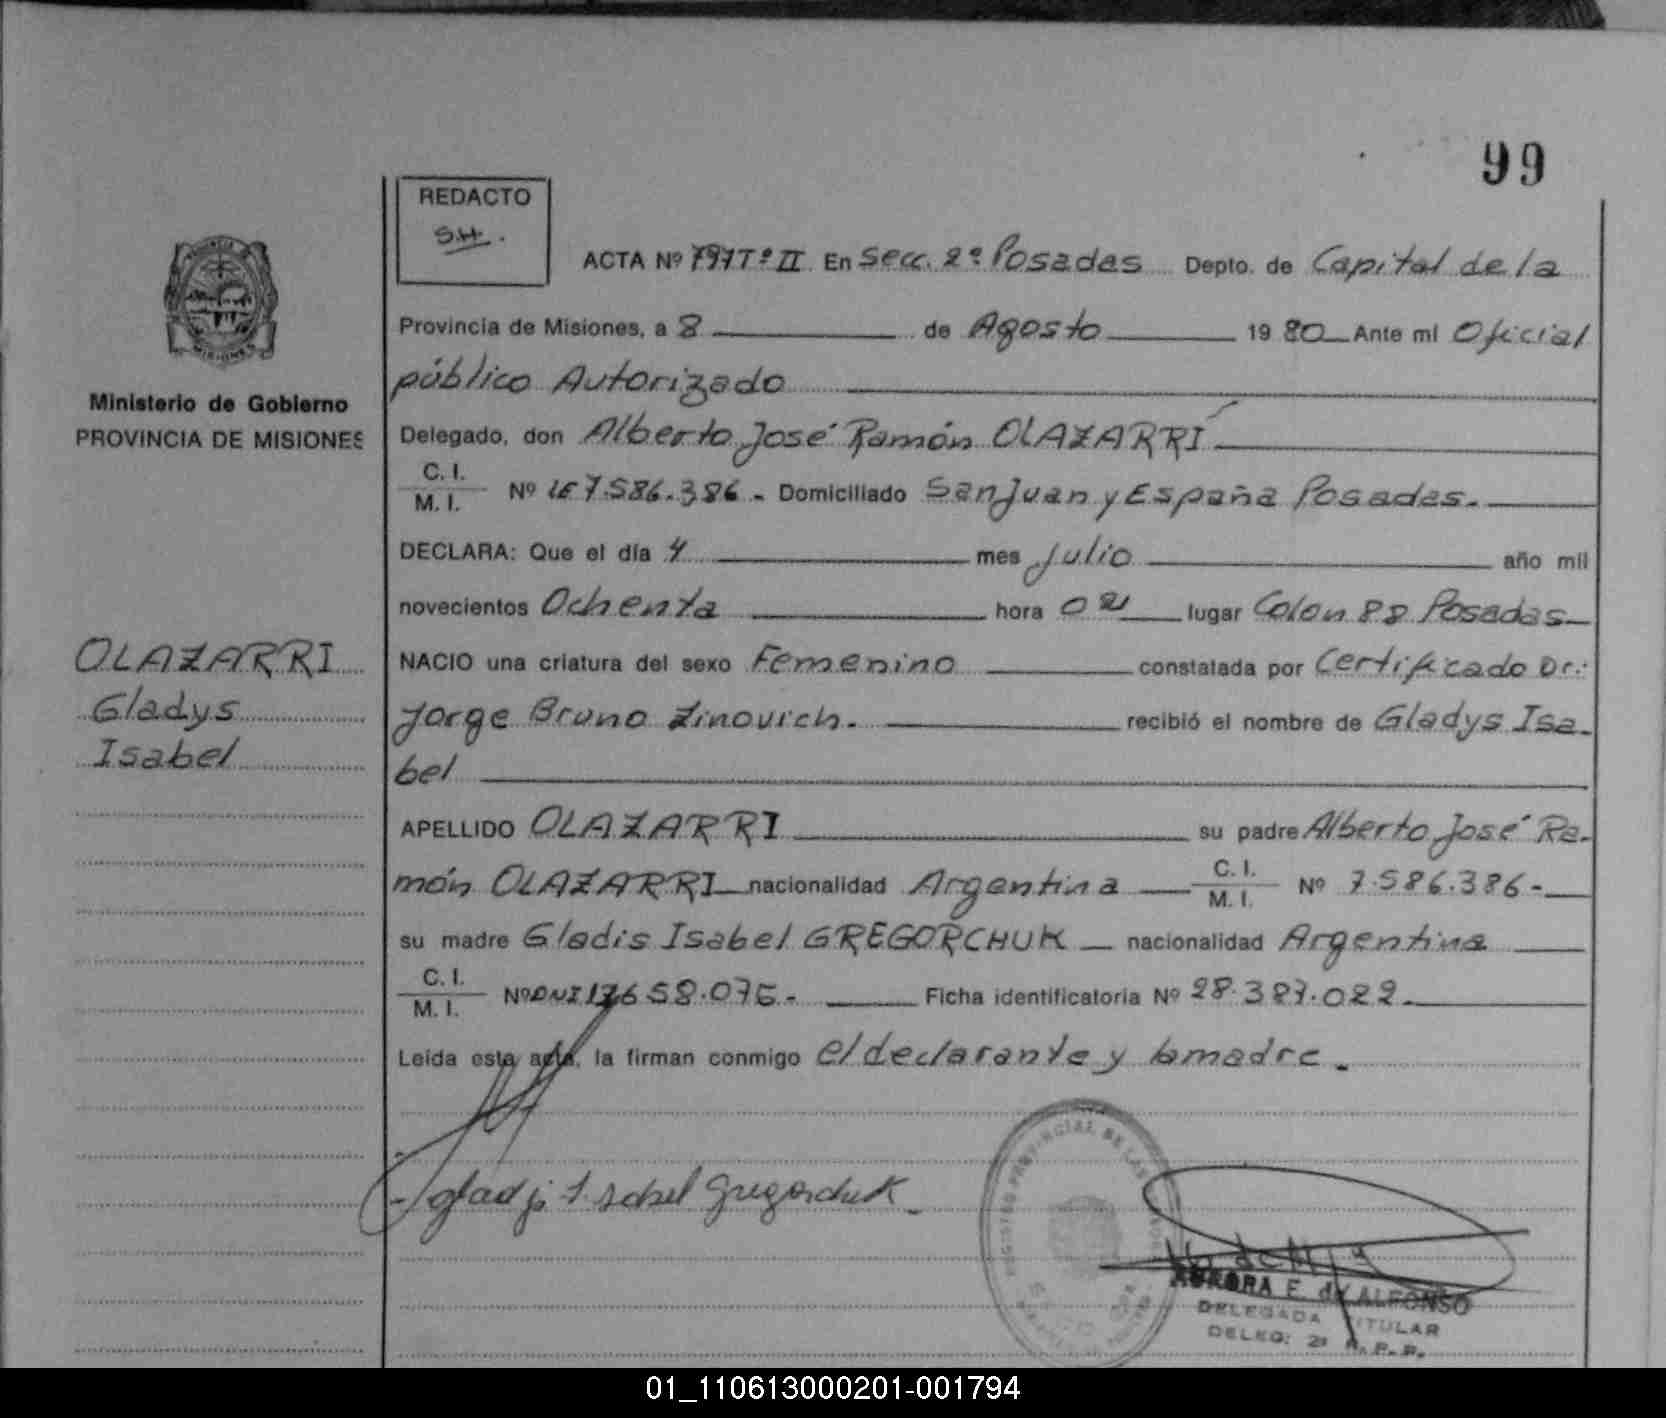 99
REDACTO
S.H.
ACTA Nº 797 Tº II En Secc. 2º Posadas Depto. de Capital de la
Provincia de Misiones, a 8 de Agosto 1980 Ante mi Oficial
público Autorizado
MISIONES
Ministerio de Gobierno
PROVINCIA DE MISIONES
Delegado, don Alberto José Ramón OLAZARRI
C. I.
M. I. Nº LE 7.586.386.- Domiciliado San Juan y España Posadas.
DECLARA: Que el día 4 mes Julio año mil
novecientos Ochenta hora 02 lugar Colon 88 Posadas
OLAZARRI
Gladys
Isabel
NACIO una criatura del sexo Femenino constatada por Certificado Dr.:
Jorge Bruno Zinovich. recibió el nombre de Gladys Isa-
bel
APELLIDO OLAZARRI su padre Alberto José Ra-
món OLAZARRI nacionalidad Argentina C. I.
M. I. Nº 7.586.386-
su madre Gladis Isabel GREGORCHUK nacionalidad Argentina
C. I.
M. I. Nº DNI 17.658.076.- Ficha identificatoria Nº 28.387.022.
Leída esta acta, la firman conmigo el declarante y la madre.
REGISTRO PROVINCIAL DE LAS
AURORA F. de ALFONSO
DELEGADA TITULAR
DELEG: 2ª R. P. P.
01_110613000201-001794